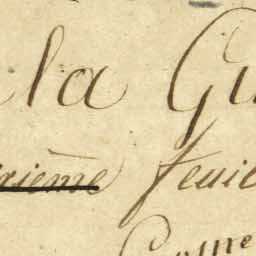 la Gu
rième feuil
Comme